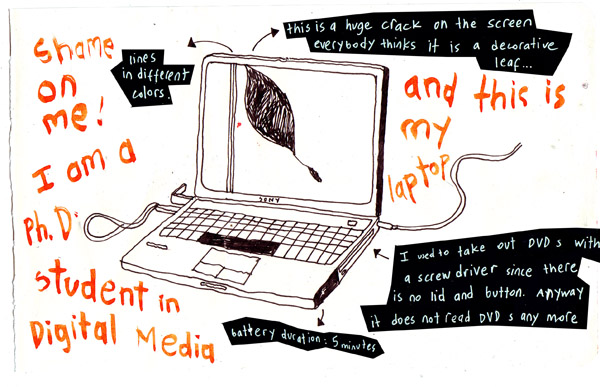 Shame
on
me!
I am a
Ph.D.
student in
Digital Media
and this is
my
laptop
lines
in different
colors.
this is a huge crack on the screen
everybody thinks it is a decorative
leaf...
SONY
I used to take out DVD s with
a screw driver since there
is no lid and button. Anyway
it does not read DVD s any more
battery duration: 5 minutes